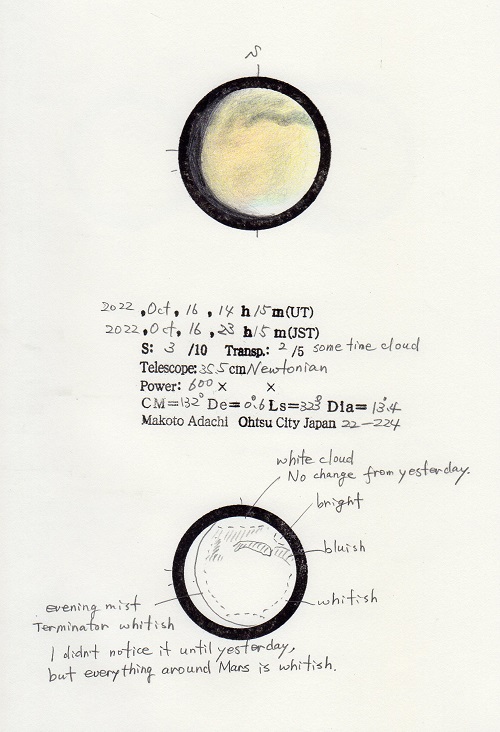 S
2022, Oct, 16, 14 h 15 m (UT)
2022, Oct, 16, 23 h 15 m (JST)
S: 3 /10 Transp.: 2 /5 some time cloud
Telescope: 35.5 cm Newtonian
Power: 600 × ×
CM=132° De=0.°6 Ls=323° Dia= 13.″4
Makoto Adachi Ohtsu City Japan 22-224
white cloud
No change from yesterday.
bright
bluish
whitish
evening mist
Terminator whitish
I didn't notice it until yesterday,
but everything around Mars is whitish.